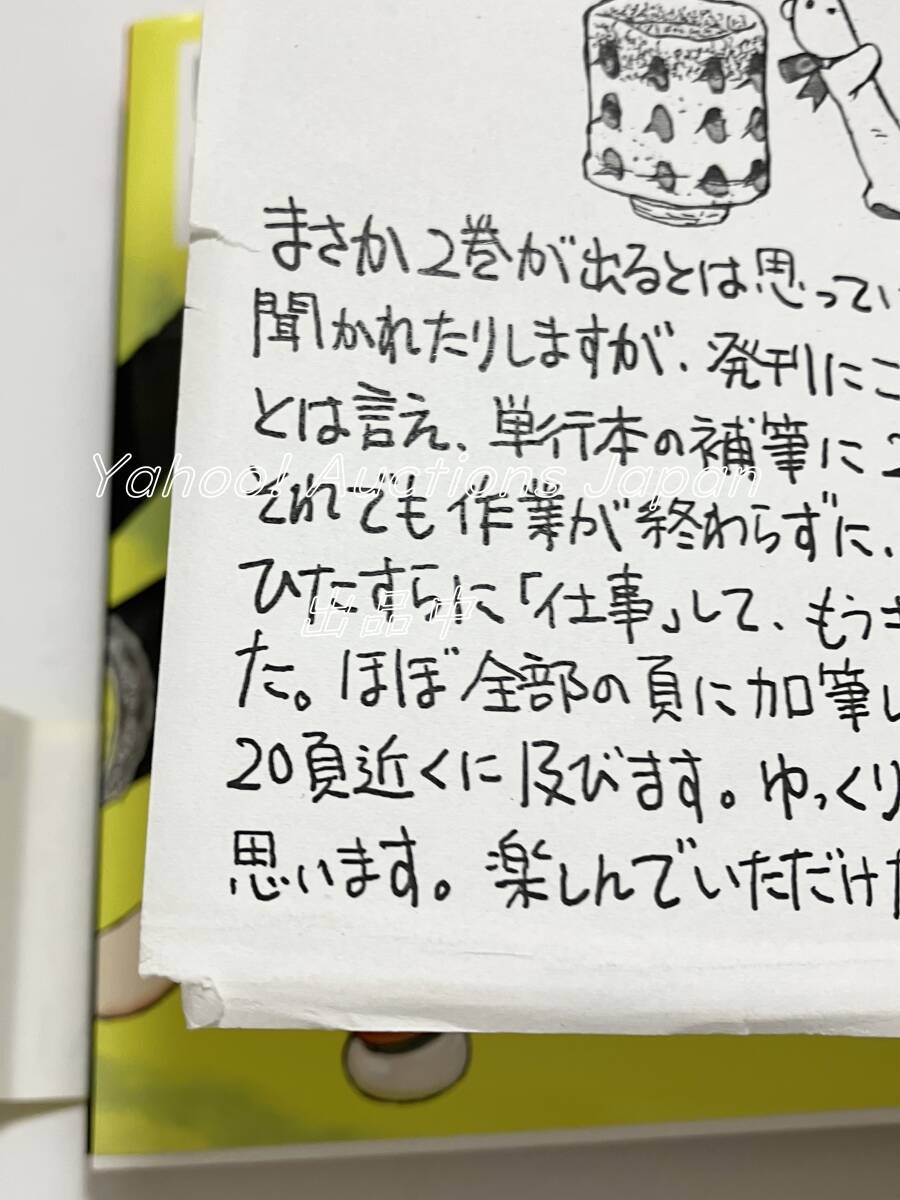 まさか2巻が出るとは思ってい
聞かれたりしますが、発刊にこ
とは言え、単行本の補筆に2
Yahoo! Auctions Japan
それでも作業が終わらずに、
ひたすらに「仕事」して、もうき
出品中
た。ほぼ全部の頁に加筆し
20頁近くに及びます。ゆっくり
思います。楽しんでいただけた